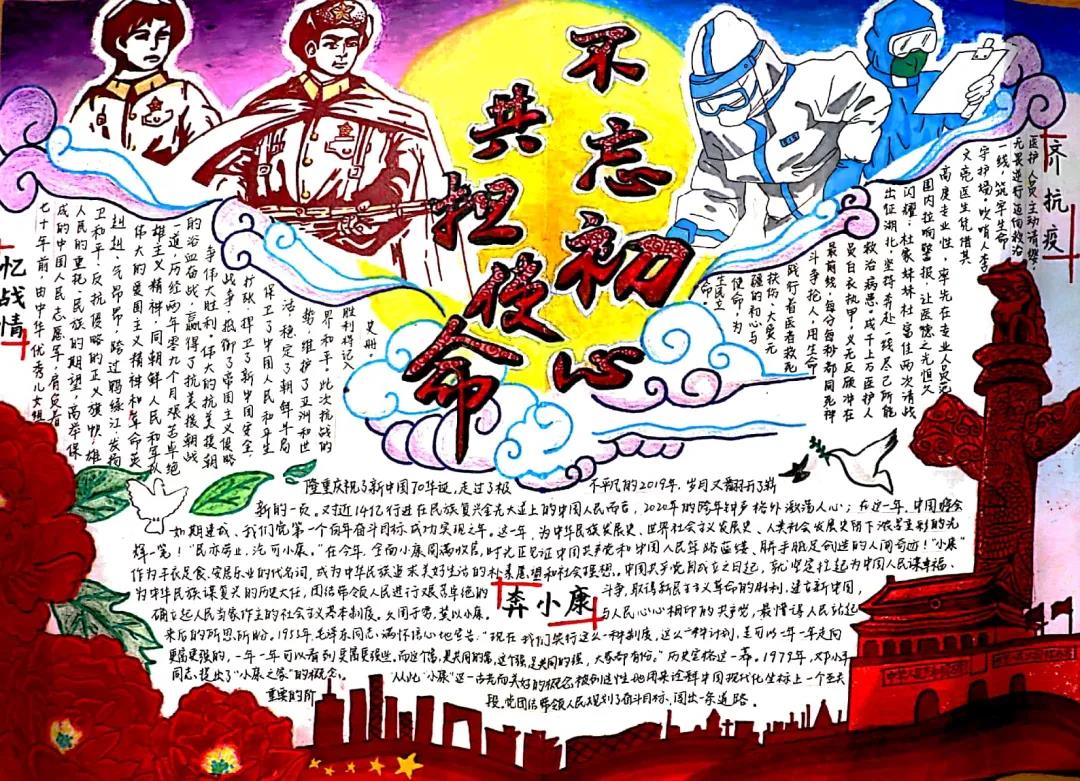 不忘初心
共担使命
忆战情
七十年前,由中华优秀儿女组
成的中国人民志愿军,肩负着
人民的重托、民族的期望,高举保
卫和平、反抗侵略的正义旗帜,雄
赳赳、气昂昂,跨过鸭绿江,发扬
伟大的爱国主义精神和革命英
雄主义精神,同朝鲜人民和军队
一道,历经两年零九个月艰苦卓绝
的浴血奋战,赢得了抗美援朝战
争伟大胜利。伟大的抗美援朝
战争,抵御了帝国主义侵略
扩张,捍卫了新中国安全,
保卫了中国人民和平生
活,稳定了朝鲜半岛局
势,维护了亚洲和世
界和平。此次抗战的
胜利将记入
史册。
齐抗疫
医护人员主动请缨,
无畏逆行返回救治
一线,筑牢生命
守护墙。吹哨人李
文亮医生凭借其
高度专业性,率先在专业人员范
围内拉响警报,让医德之光恒久
闪耀,杜家姝妹杜富佳两次请战
出征湖北,坚持奔赴一线尽己所能
救治病患。成千上万医护人
员白衣执甲,义无反顾冲在
最前线,每分每秒都同死神
斗争抢人,用生命
践行着医者救死
扶伤、大爱无
疆的初心与
使命,为
生民立
命。
隆重庆祝了新中国70年华诞,走过了极 不平凡的2019年,岁月又翻开了崭
新的一页。对近14亿行进在民族复兴金光大道上的中国人民而言,2020年的跨年钟声格外激荡人心;在这一年,中国将全
如期建成、我们党第一个百年奋斗目标成功实现之年。这一年,为中华民族发展史、世界社会主义发展史、人类社会发展史留下浓墨重彩的光
辉一笔!“民亦劳止,汔可小康。”在今年,全面小康圆满收官,时光正见证中国共产党和中国人民筚路蓝缕、胼手胝足创造的人间奇迹!“小康”
作为丰衣足食、安居乐业的代名词,成为中华民族追求美好生活的朴素愿望和社会理想。中国共产党自成立之日起,就坚定扛起为中国人民谋幸福、
为中华民族谋复兴的历史大任,团结带领人民进行艰苦卓绝的 斗争,取得新民主主义革命的胜利,建立新中国,
奔小康
确立起人民当家作主的社会主义基本制度。久困于穷,冀以小康。 与人民心心相印的共产党,最懂得人民站起
来后的所思所盼。1955年,毛泽东同志满怀信心地宣告:“现在我们实行这么一种制度,这么一种计划,是可以一年一年走向
更富更强的,一年一年可以看到更富更强些。而这个富,是共同的富,这个强,是共同的强,大家都有份。”历史定格这一幕。1979年,邓小平
同志,提出了“小康之家”的概念。 从此“小康”这一古老而美好的概念被创造性地用来诠释中国现代化坐标上一个至关
重要的阶 段,党团结带领人民规划了奋斗目标、闯出一条道路。